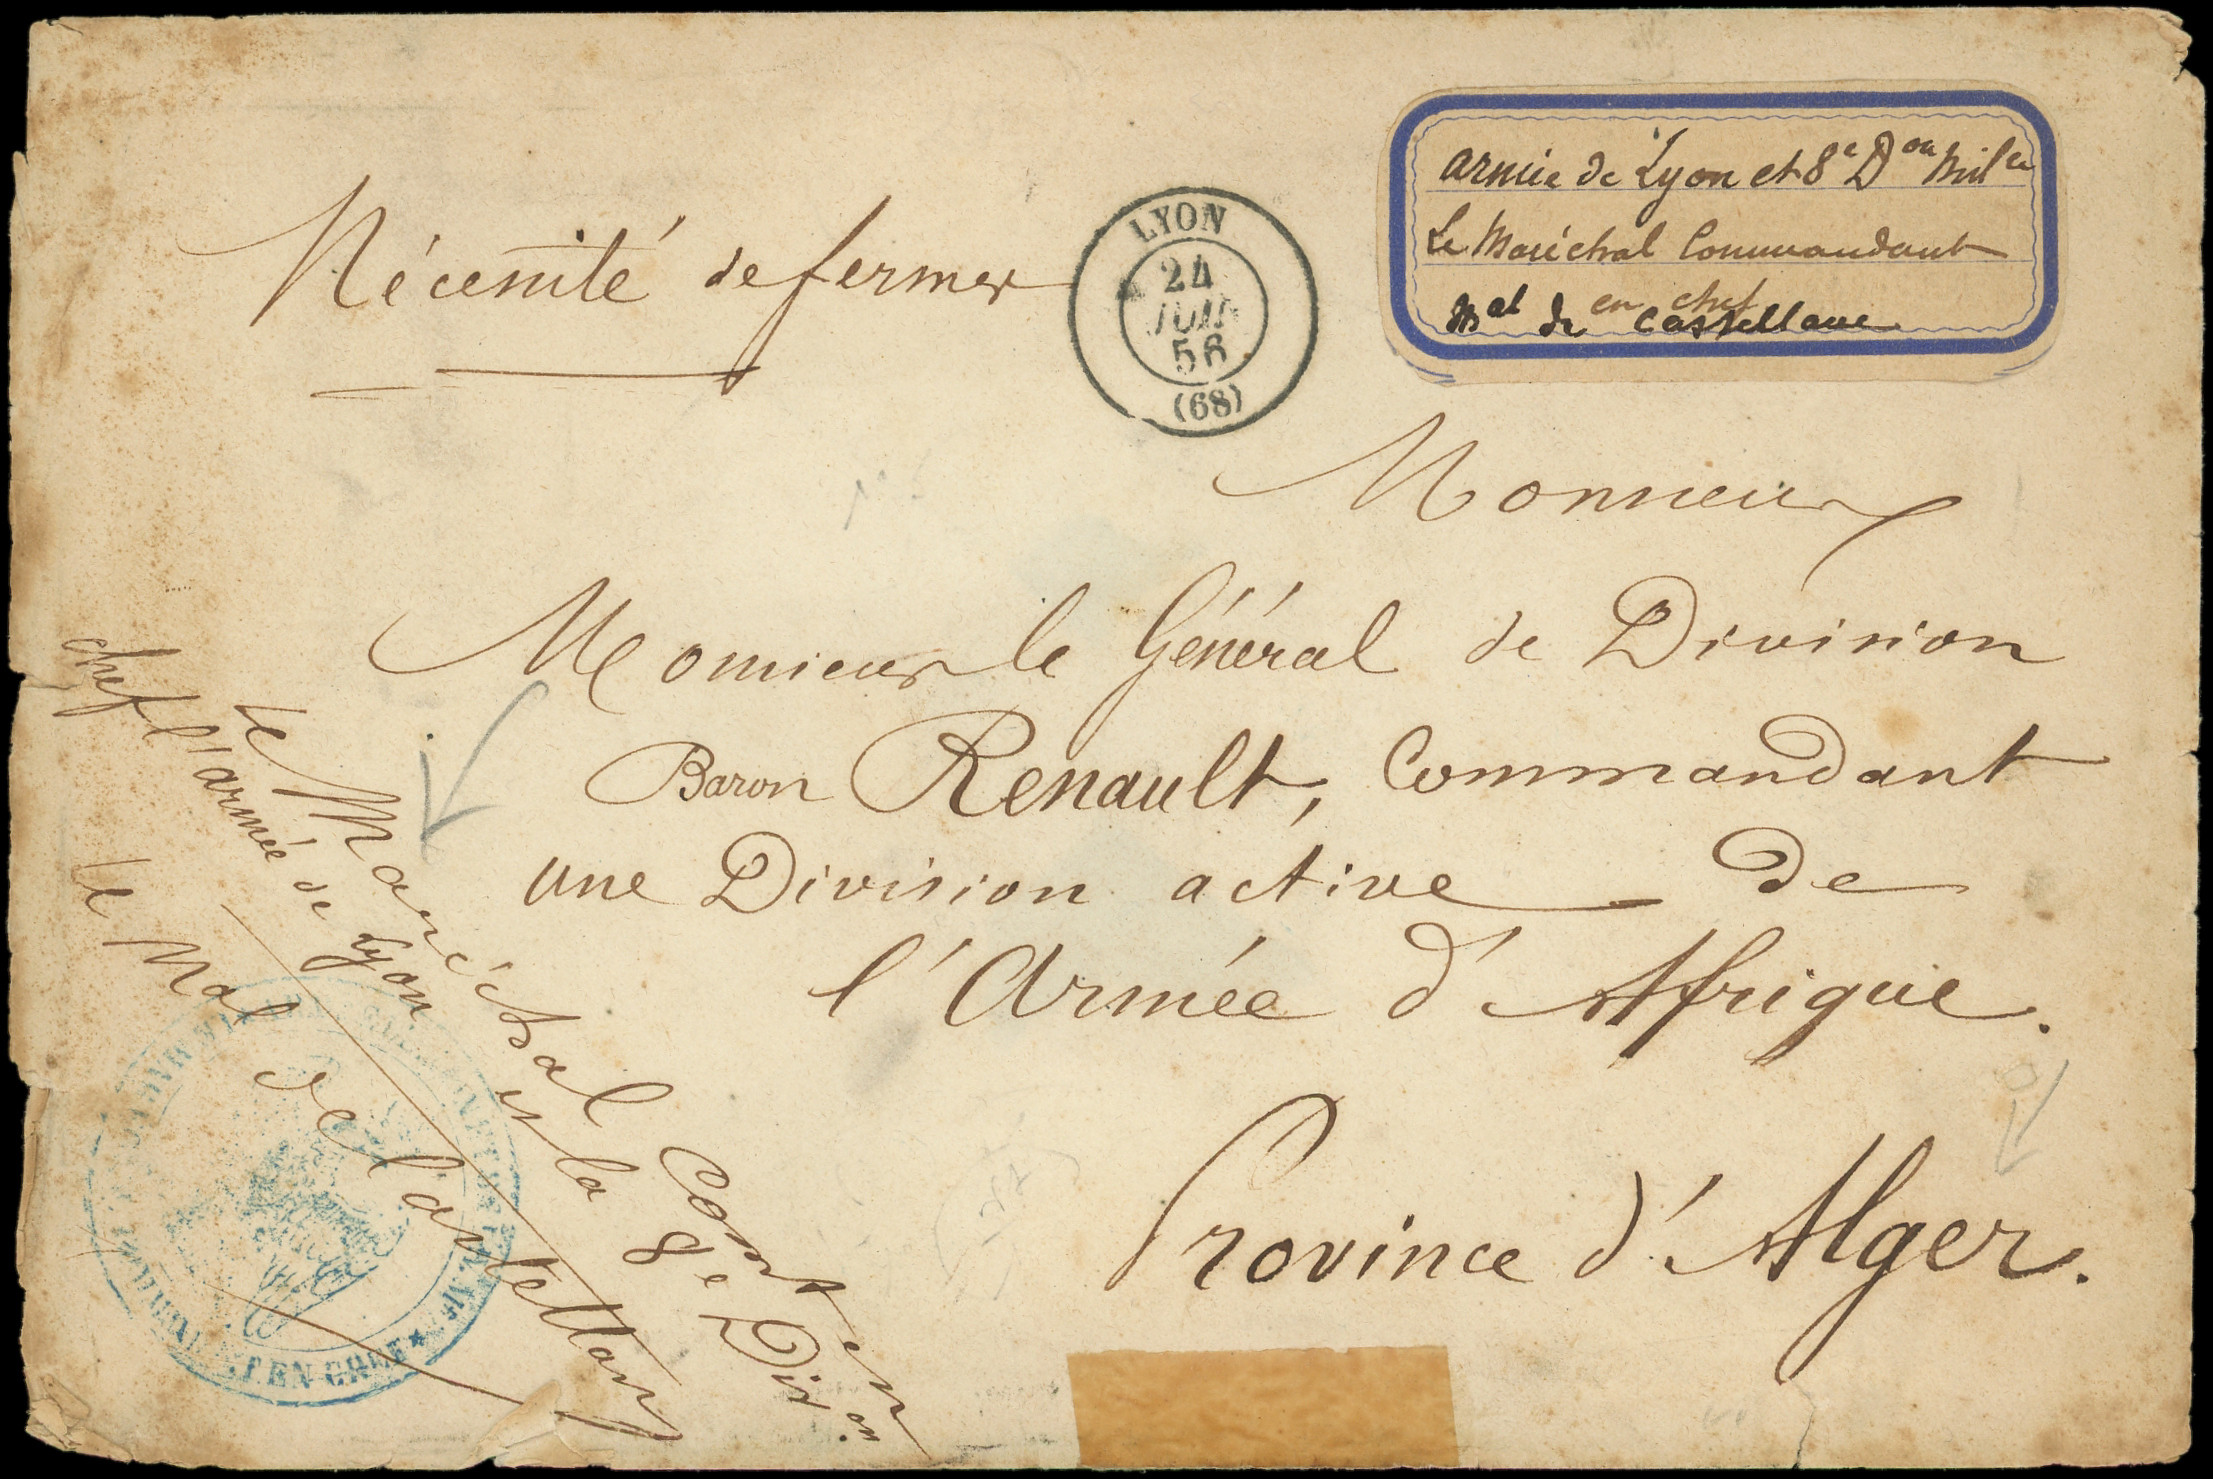 Nécessité de fermer
LYON
24
JUIN
56
(68)
armée de Lyon et 8e Don Mile
Le Maréchal Commandant
en chef
Mal de Castellane
Monsieur
Monsieur le Général de Division
Baron Renault, Commandant
une Division active de
l'Armée d'Afrique.
Province d'Alger.
Le Maréchal Comt en
chef l'armée de Lyon et la 8e Dion.
le Mal de Castellane
EN CHEF